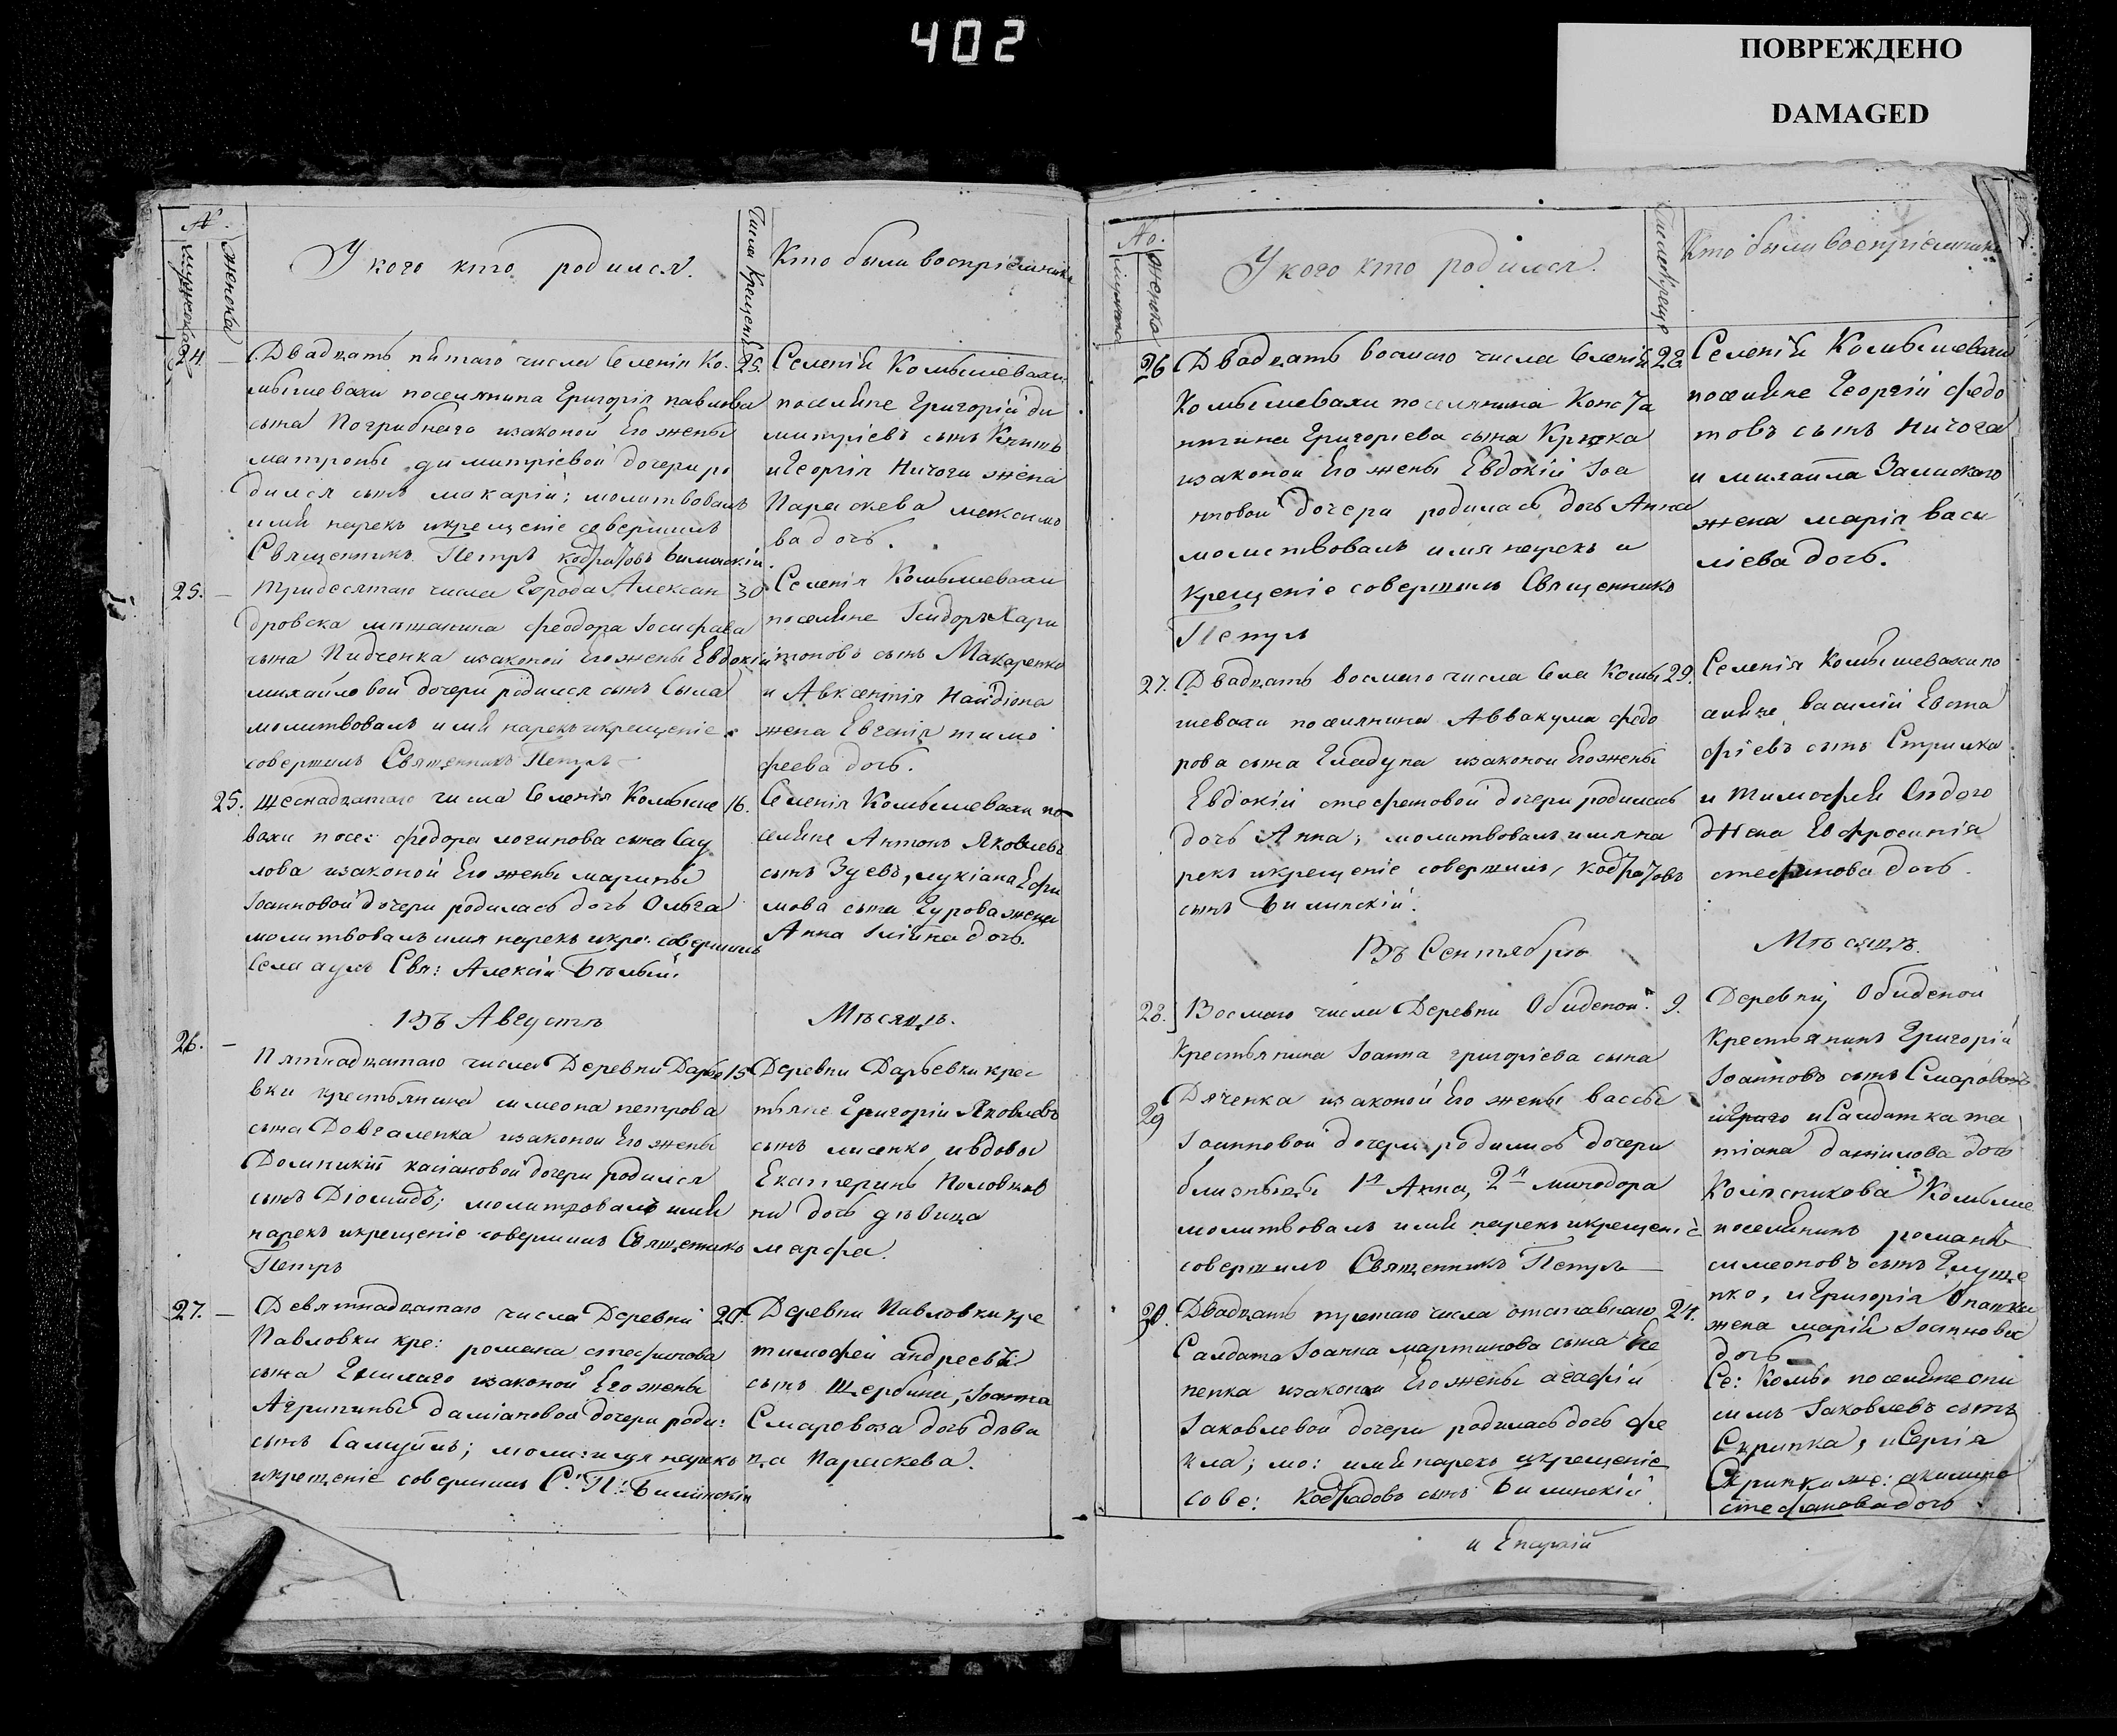 402
ПОВРЕЖДЕНО
DAMAGED
№.
мужеска
женска
У кого кто родился.
Числа Крещенія
Кто были воспріемники
24 — Двадцать пятаго числа Селенія Ко- 25.
мышевахи поселянина Григорія павлова
сына Погрибнаго изаконой Его жены
матроны димитріевой дочери ро
дился сынъ макарій; молитвовалъ
имя нарекъ икрещеніе совершилъ
Священникъ Петръ Билинскій.
Селеній Комышевахи
поселяне Григорій ди
митріевъ сынъ
и Георгія Ничоги жена
Параскева максимо
ва дочь.
25. — Тридесятаго числа Города Алексан 30
дровска мѣщанина феодора Іосифова
сына Пидченка изаконой Его жены Евдокіи
михайловой дочери родился сынъ Сыла
молитвовалъ имя нарекъ икрещеніе
совершилъ Священникъ Петръ
Селенія Комышевахи
поселяне Исидоръ Хари
тоновъ сынъ Макаренко
и Авксентія Найдіона
жена Евгенія тимо
феева дочь.
25. Шеснадцатаго числа Селенія Комыше 16.
вахи посе: федора логинова сына
лова изаконой Его жены марины
Іоанновой дочери родилась дочь Ольга
молитвовалъ имя нарекъ икре: совершилъ
Села Свя: Алексій Бѣлый.
Селенія Комышевахи по
селяне Антонъ Яковлевъ
сынъ Зуевъ, лукіана Ефи
мова сына Гурова жена
Анна Иліина дочь.
Въ Августѣ
Мѣсяцѣ.
26. — Пятнадцатаго числа Деревни Дарье 15
вки крестьянина симеона петрова
сына Довгаленка изаконой Его жены
Домникіи касіановой дочери родился
сынъ Діомидъ; молитвовалъ имя
нарекъ икрещеніе совершилъ Священникъ
Петръ
Деревни Дарьевки крес
тьяне Григорій Яковлевъ
сынъ лисенко ивдовы
Екатерины Половинк
ни дочь дѣвица
марфа.
27. — Девятнадцатаго числа Деревни 20.
Павловки кре: романа стефанова
сына изаконой Его жены
Агрипины даміановой дочери роди:
сынъ Самуилъ; моли: имя нарекъ
икрещеніе совершилъ С: П: Билинскій
Деревни Павловки кре
тимофей андреевъ
сынъ Щербина, Іоанна
Смаровоза дочь дѣви
ца Параскева.
№.
мужеска
женска
У кого кто родился.
Числа Креще
Кто были воспріемники
26 Двадцать восмаго числа Селеній 28.
Комышевахи поселянина Конста
нтина Григоріева сына Крюка
изаконой Его жены Евдокіи Іоа
нновой дочери родилась дочь Анна
молитвовалъ имя нарекъ и
крещеніе совершилъ Священникъ
Петръ
Селеній Комышевахи
поселяне Георгій федо
товъ сынъ Ничога
и михаила Залиского
жена марія васи
ліева дочь.
27. Двадцать восмаго числа Села Комы 29.
шевахи поселянина Аввакума федо
рова сына Гладуна изаконой Его жены
Евдокіи стефановой дочери родилась
дочь Анна; молитвовалъ имя на
рекъ икрещеніе совершилъ,
сынъ Билинскій.
Селенія Комышевахи по
селяне василій Евста
фіевъ сынъ Стрилка
и Тимофей
жена Евфросинія
стефанова дочь.
Въ Сентябрѣ
Мѣсяцѣ.
28. Восмаго числа Деревни Обиденой 9.
крестьянина Іоанна григоріева сына
Дяченка изаконой Его жены вассы
29
Іоанновой дочери родились дочери
близныцы 1я Анна, 2я минодора
молитвовалъ имя нарекъ икрещеніе
совершилъ Священникъ Петръ
Деревни Обиденой
Крестьянинъ Григорій
Іоанновъ сынъ Смаровозъ
и Салдатка та
тіана даніилова дочь
Колесникова Комыше
поселянинъ романъ
симеоновъ сынъ Глуще
нко, и Григорія Опанки
жена марія Іоаннова
дочь
30. Двадцать третаго числа отставнаго 24.
Салдата Іоанна мартинова сына Не
пенка изаконой Его жены агафіи
Іаковлевой дочери родилась дочь фе
кла; мо: имя нарекъ икрещеніе
сове: сынъ Билинскій
Се: Комы: поселяне они
симъ Іаковлевъ сынъ
Скрипка, и Сергія
Скрипки же: акилина
стефановадочь
и Епархій